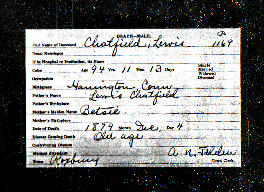 DEATH—MALE.
Full Name of Deceased Chatfield, Lewis 1169
Usual Residence
If in Hospital or Institution, its Name
Color Age 94 Yrs. 11 Mos. 13 Days Single Married Widowed Divorced
Birthplace Harrington, Conn
Father's Name Lewis Chatfield
Father's Birthplace
Mother's Maiden Name Betsie
Mother's Birthplace
Date of Death 1879 Month Dec, Day 4
Disease Causing Death Old age
Contributing Disease
Medical Attendant
Town Roxbury A. N. Town Clerk.